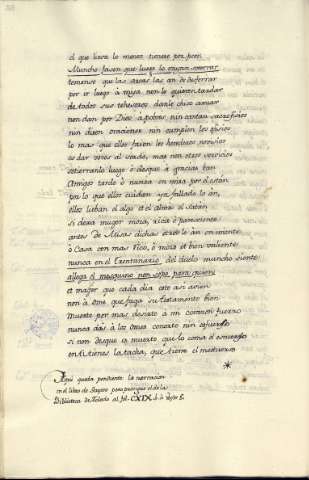 el que lieva lo menos tienese por peor
Mucho fasen que luego lo vayan soterrar
temense que las arcas les an de desferrar
por ir luego à misa non lo quieren tardar
de todos sus thesoros danle chico axuar
non dan por Dios à pobres nin cantan sacrificios
nin disen oraciones nin cumplen los oficios
lo mas que ellos fasen los herederos novicios
es dar voces al sordo, mas non otros servicios
sotierranlo luego è desque à gracias van
Amidos tarde ò nunca en misa por el están
por lo que ellos andaban ya fallado lo an
ellos lieban el algo et el alma el satán
si dexa muger moza, rica ò paresciente
antes de Misas dichas otros la an en miente
ò Casa con mas rico, ò moso et bien valiente
nunca en el Treintanario, del duelo mucho siente
allega el mesquino non sabe para quien
et maguer que cada dia esto asi avien
non à ome que faga su testamento bien
muerte por mas desirte à mi corazon fuerzo
nunca das à los omes conorte nin esfuerzo
si non desque es muerto que lo coma el escuerzo
en ti tienes la tacha, que tiene el mestuerzo
Aqui queda pendiente la narracion
en el libro de Gayoso
Biblioteca de Toledo al fol. CXIX